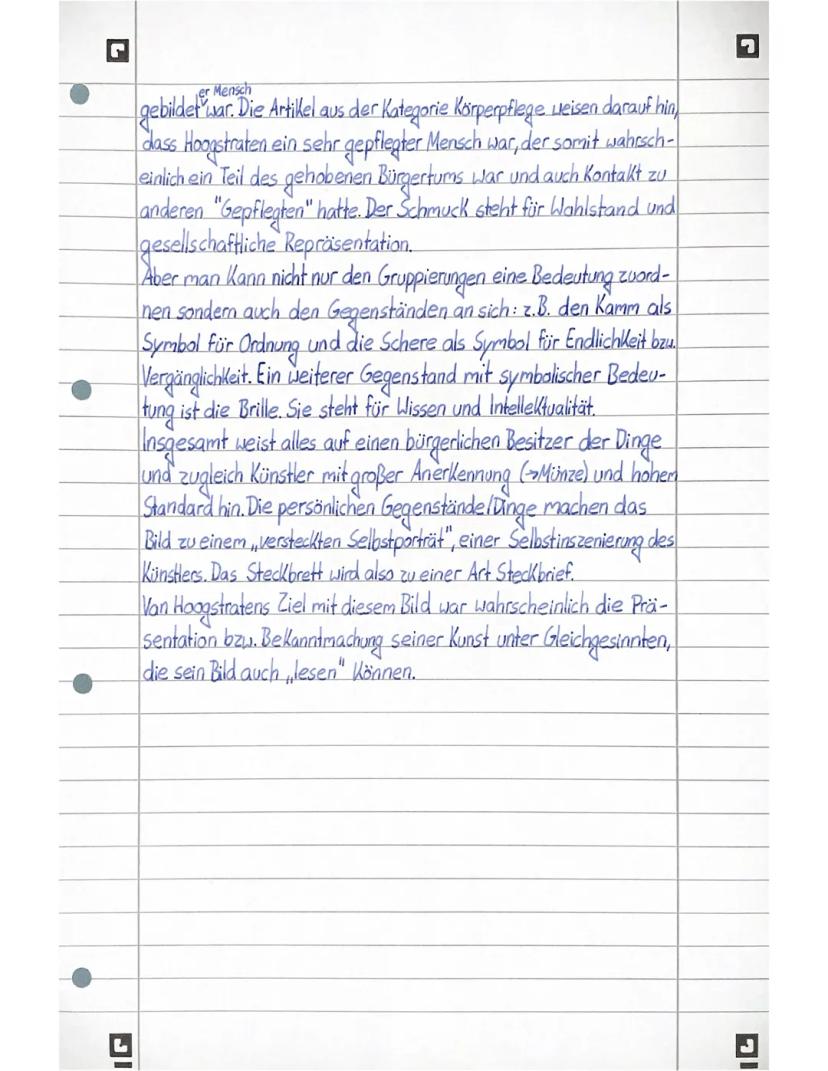 gebildeter Mensch war. Die Artikel aus der Kategorie Körperpflege weisen darauf hin,
dass Hoogstraten ein sehr gepflegter Mensch war, der somit wahrsch-
einlich ein Teil des gehobenen Bürgertums war und auch Kontakt zu
anderen "Gepflegten" hatte. Der Schmuck steht für Wohlstand und
gesellschaftliche Repräsentation.
Aber man kann nicht nur den Gruppierungen eine Bedeutung zuord-
nen sondern auch den Gegenständen an sich: z.B. den Kamm als
Symbol für Ordnung und die Schere als Symbol für Endlichkeit bzw.
Vergänglichkeit. Ein weiterer Gegenstand mit symbolischer Bedeu-
tung ist die Brille. Sie steht für Wissen und Intellektualität.
Insgesamt weist alles auf einen bürgerlichen Besitzer der Dinge
und zugleich Künstler mit großer Anerkennung (→Münze) und hohem
Standard hin. Die persönlichen Gegenstände/Dinge machen das
Bild zu einem „versteckten Selbstporträt", einer Selbstinszenierung des
Künstlers. Das Steckbrett wird also zu einer Art Steckbrief.
Van Hoogstratens Ziel mit diesem Bild war wahrscheinlich die Prä-
sentation bzw. Bekanntmachung seiner Kunst unter Gleichgesinnten,
die sein Bild auch „lesen" können.